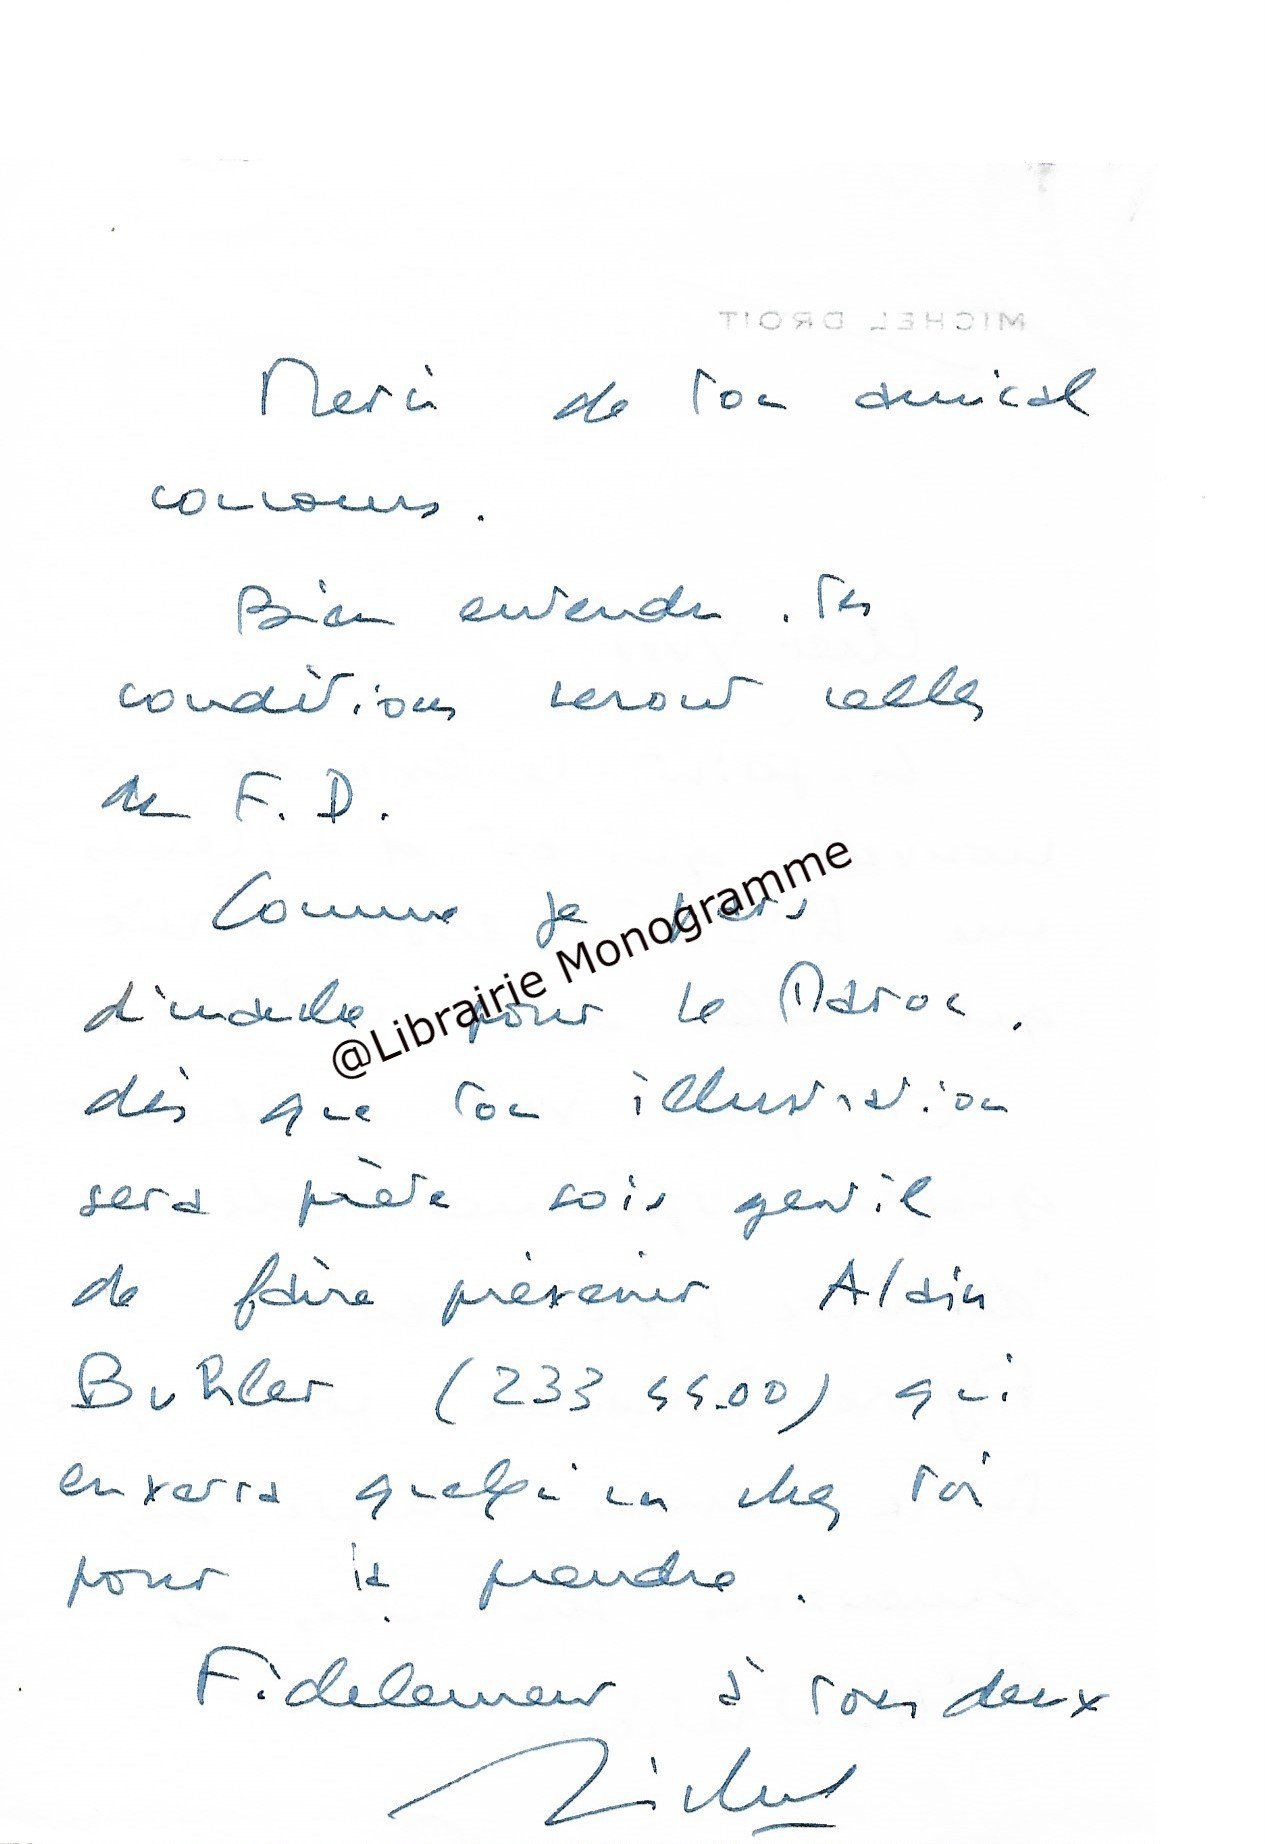 MICHEL DROIT
Merci de ton amical
concours.
Bien entendu, tes
conditions seront celles
du F. D.
Comme je pars
dimanche pour le Maroc,
dès que ton illustration
sera prête sois gentil
de faire prévenir Alain
Buhler (233 44.00) qui
enverra quelqu'un chez toi
pour la prendre.
Fidèlement à tous deux
Michel
@Librairie Monogramme